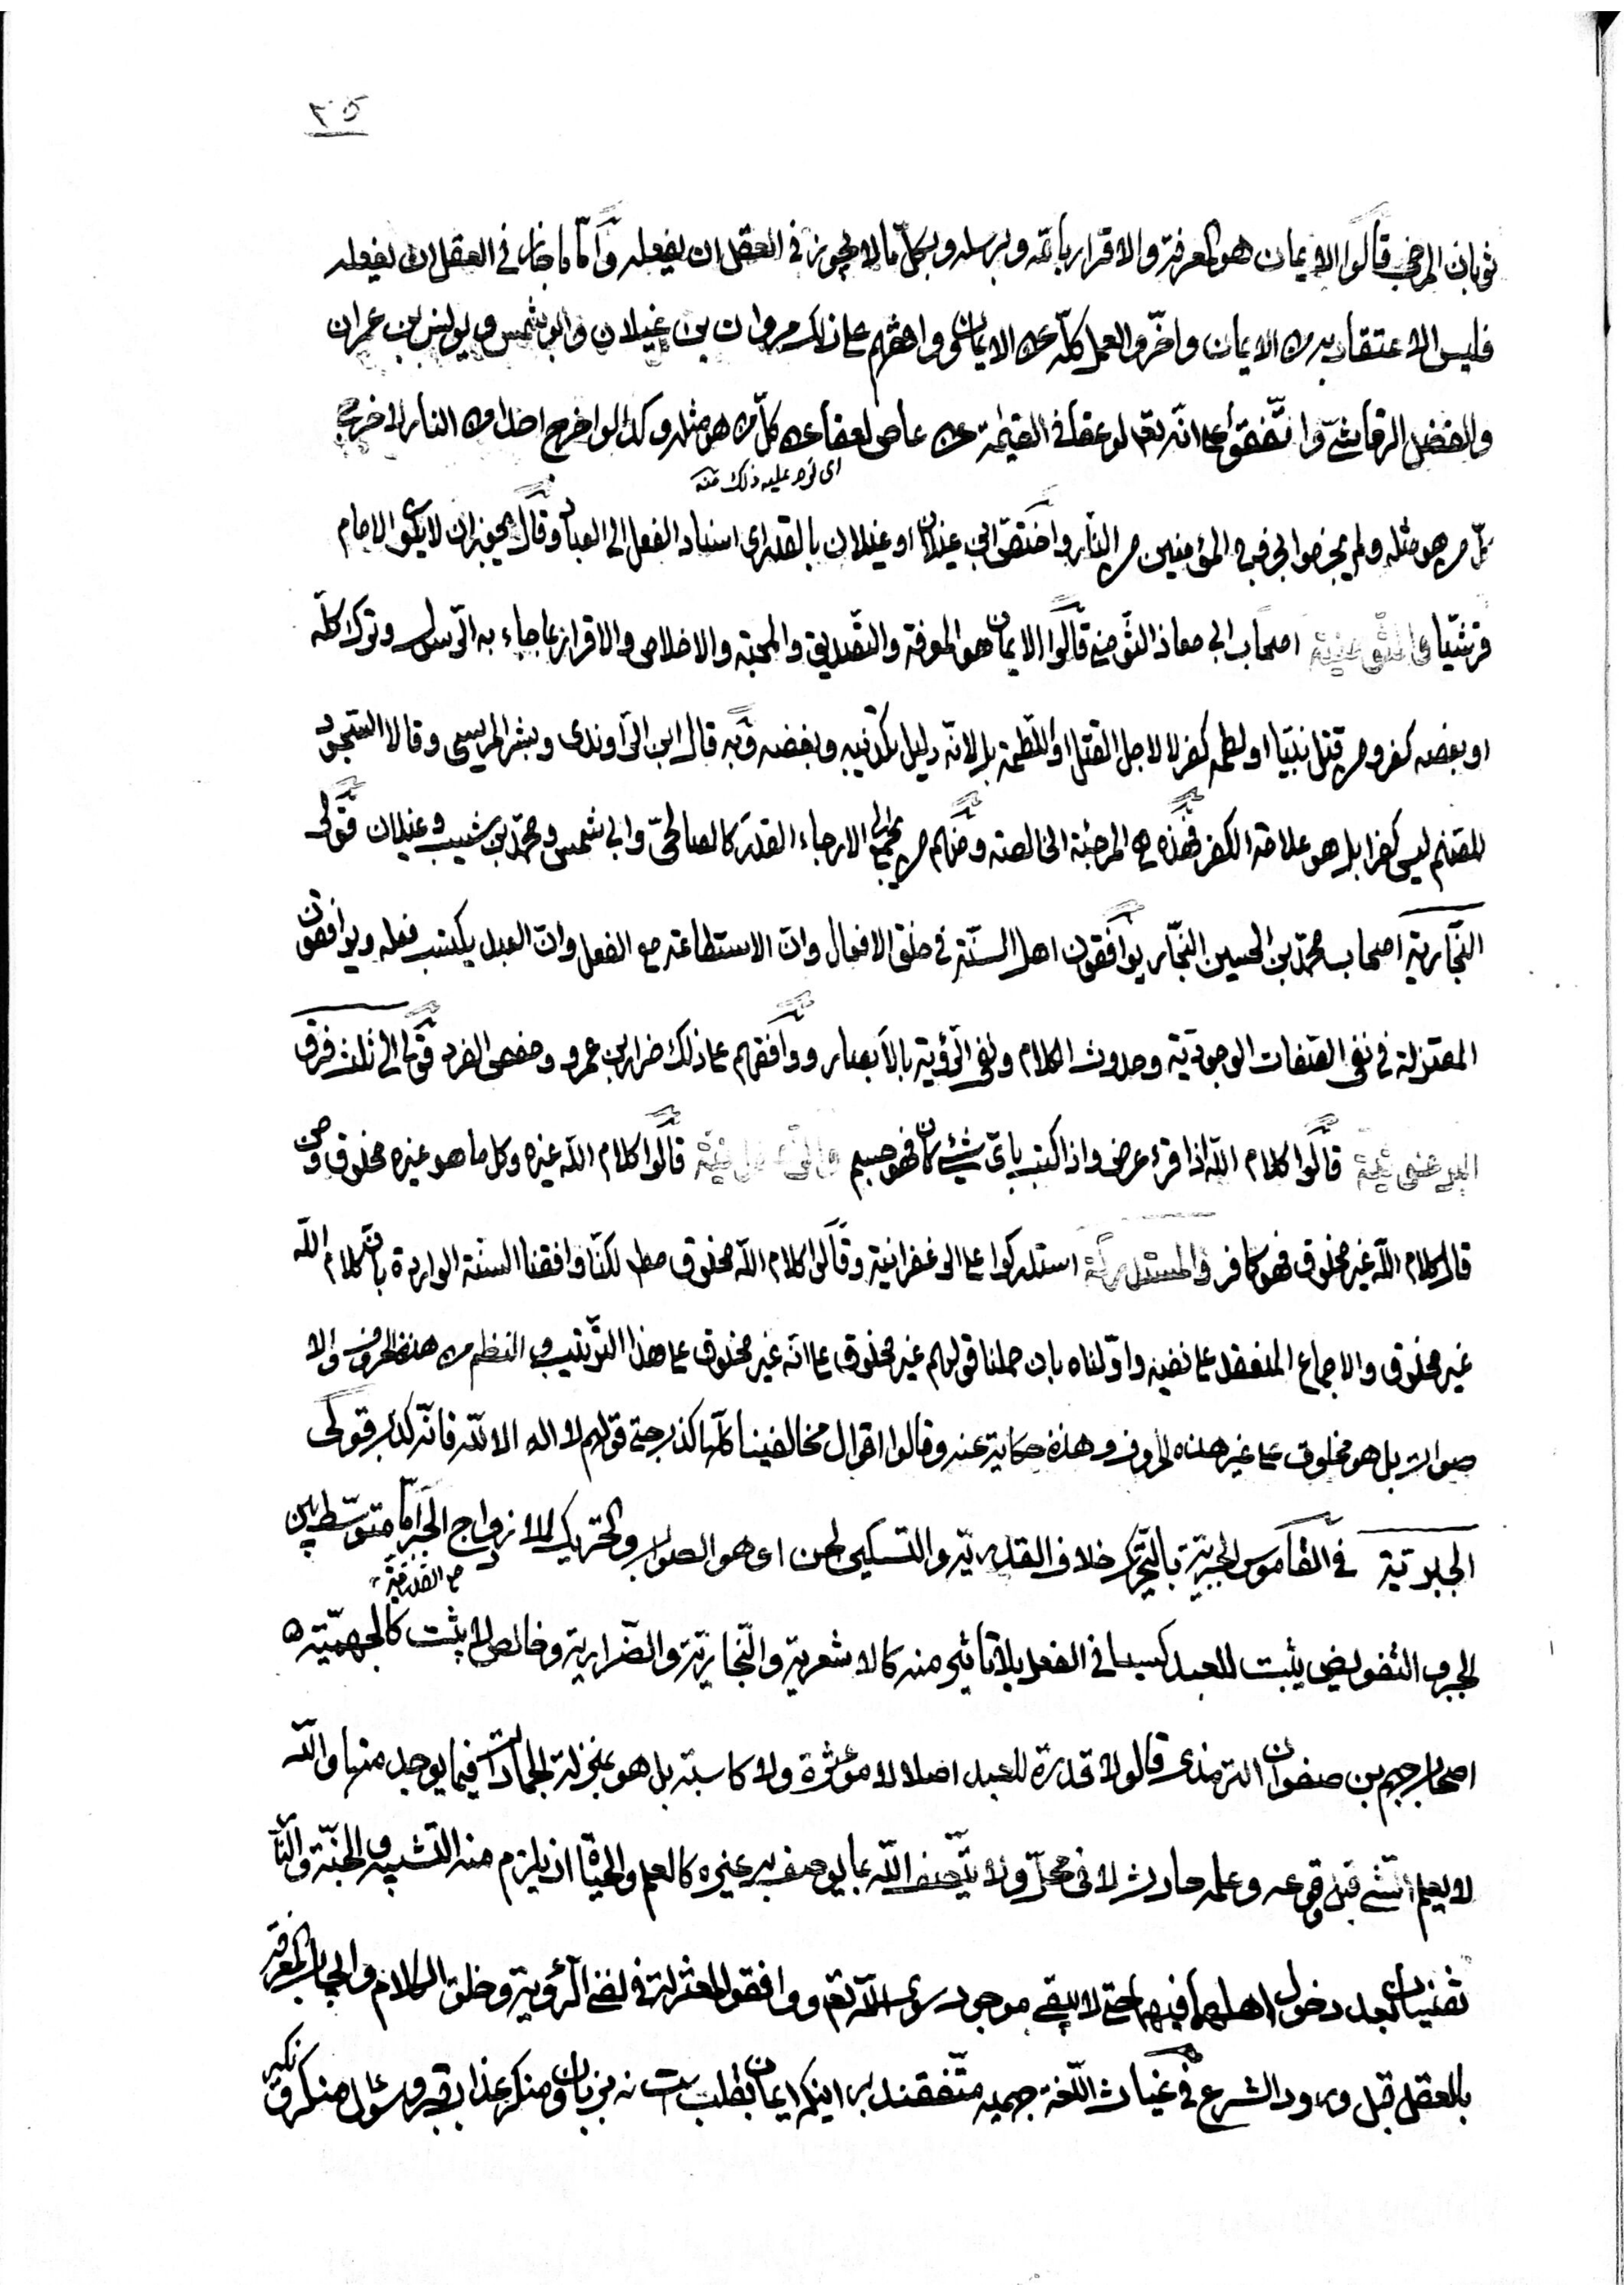 ٢٥
ثوبان المرجئ قالوا الايمان هو المعرفة والاقرار بالله وبرسله وبكلّ ما لا يجوز في العقل ان يفعله وامّا ما جاز في العقل ان يفعله
فليس الاعتقاد به من الايمان واخّروا العمل كلّه عن الايمان ووافقهم على ذلك مروان بن غيلان وابو شمس ويونس بن عمران
والفضل الرقاشيّ واتّفقوا على انّه تعالى لو عفا في القيمة عن عاص لعفا عن كلّ من هو مثله وكذا لو اخرج احدا من النار لاخرج
اى نوع عليه ذلك منه
كلّ من هو مثله ولم يجزموا بخروج المؤمنين من النّار واختصّ ابن غيلان او غيلان بالقدر اى اسناد الفعل الى العباد وقال يجوز ان لا يكون الامام
قرشيّا والثّومنية اصحاب ابي معاذ الثّومني قالوا الايمان هو المعرفة والتّصديق والمحبّة والاخلاص والاقرار بما جاء به الرّسول وترك كلّه
او بعضه كفر ومن قتل نبيّا او لطمه كفر لا لاجل القتل او اللّطمة بل لانّه دليل لتكذيبه وبغضه وبه قال ابن الرّاوندى وبشر المريسى وقالا السّجود
للصّنم ليس كفرا بل هو علامة الكفر فهذه هي المرجئة الخالصة ومنهم من جمع الى الارجاء القدر كالصالحيّ وابي شمس ومحمّد بن شبيب وغيلان قولى
النّجّارية اصحاب محمّد بن الحسين النجّار يوافقون اهل السنّة في خلق الافعال وانّ الاستطاعة مع الفعل وانّ العبد يكتسب فعله ويوافقون
المعتزلة في نفى الصّفات الوجوديّة وحدوث الكلام ونفى الرّؤية بالابصار ووافقهم على ذلك ضرار بن عمرو وحفص الفرد قولى الى ثلث فرق
البرغوثيّة قالوا كلام الله اذا قرء عرض واذا كتب باىّ شيئ كان فهو جسم والزّعفرانيّة قالوا كلام الله غيره وكل ما هو غيره مخلوق ومن
قال كلام الله غير مخلوق فهو كافر والمستدركة استدركوا على الزعفرانية وقالوا كلام الله مخلوق مطلقا لكنّا وافقنا السنّة الواردة بانّ كلام الله
غير مخلوق والاجماع المنعقد على نفيه واوّلناه بان حملنا قولهم غير مخلوق على انّه غير مخلوق على هذا التّرتيب والنظم من هذه الحروف والا
صوات بل هو مخلوق على غير هذه الحروف وهذه حكاية عنه وقالوا اقوال مخالفينا كلّها كذب حتى قولهم لا اله الا الله فانّه كذب قولى
الجبريّة في القاموس الجبرية بالتحريك خلاف القدريّة والتسكين لحن او هو الصواب والتحريك للازدواج الخ امّا متوسّط بين
مع القدريّة
الجبر والتفويض يثبت للعبد كسبا في الفعل بلا تأثير منه كالاشعرية والنّجاريّة والضّرارية وخالص لا يثبت كالجهميّة وهم
اصحاب جهم بن صفوان الترمذى قالوا لا قدرة للعبد اصلا لا مؤثرة ولا كاسبة بل هو بمنزلة الجمادات فيما يوجد منها والله
لا يعلم الشّيء قبل وقوعه وعلمه حادث لا في محلّ ولا يتّصف الله بما يوصف به غيره كالعلم والحيوة اذ يلزم منه التشبيه والجنّة والنّار
تفنيان بعد دخول اهلهما فيهما حتى لا يبقى موجود سوى الله تعالى ووافقوا المعتزلة في نفى الرّؤية وخلق الكلام وايجاب المعرفة
بالعقل قبل ورود الشرع في غياث اللّغة جهميه متّفقند بر اينكه ايمان بقلب است نه بزبان ومنكر عذاب قبر وسؤال منكر ونكير